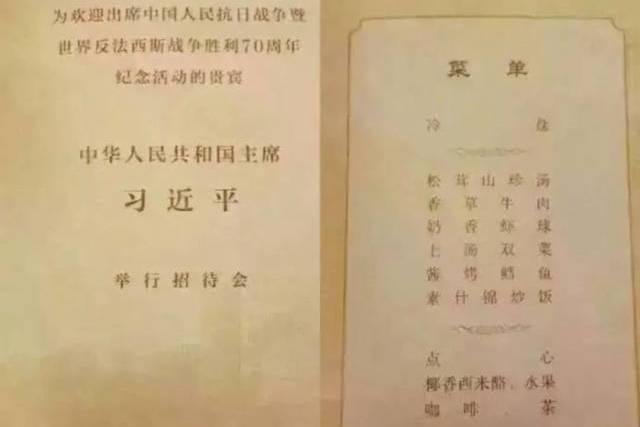 为欢迎出席中国人民抗日战争暨
世界反法西斯战争胜利70周年
纪念活动的贵宾
中华人民共和国主席
习近平
举行招待会
菜单
冷盘
松茸山珍汤
香草牛肉
奶香虾球
上汤双菜
酱烤鳕鱼
素什锦炒饭
点心
椰香西米酪、水果
咖啡 茶